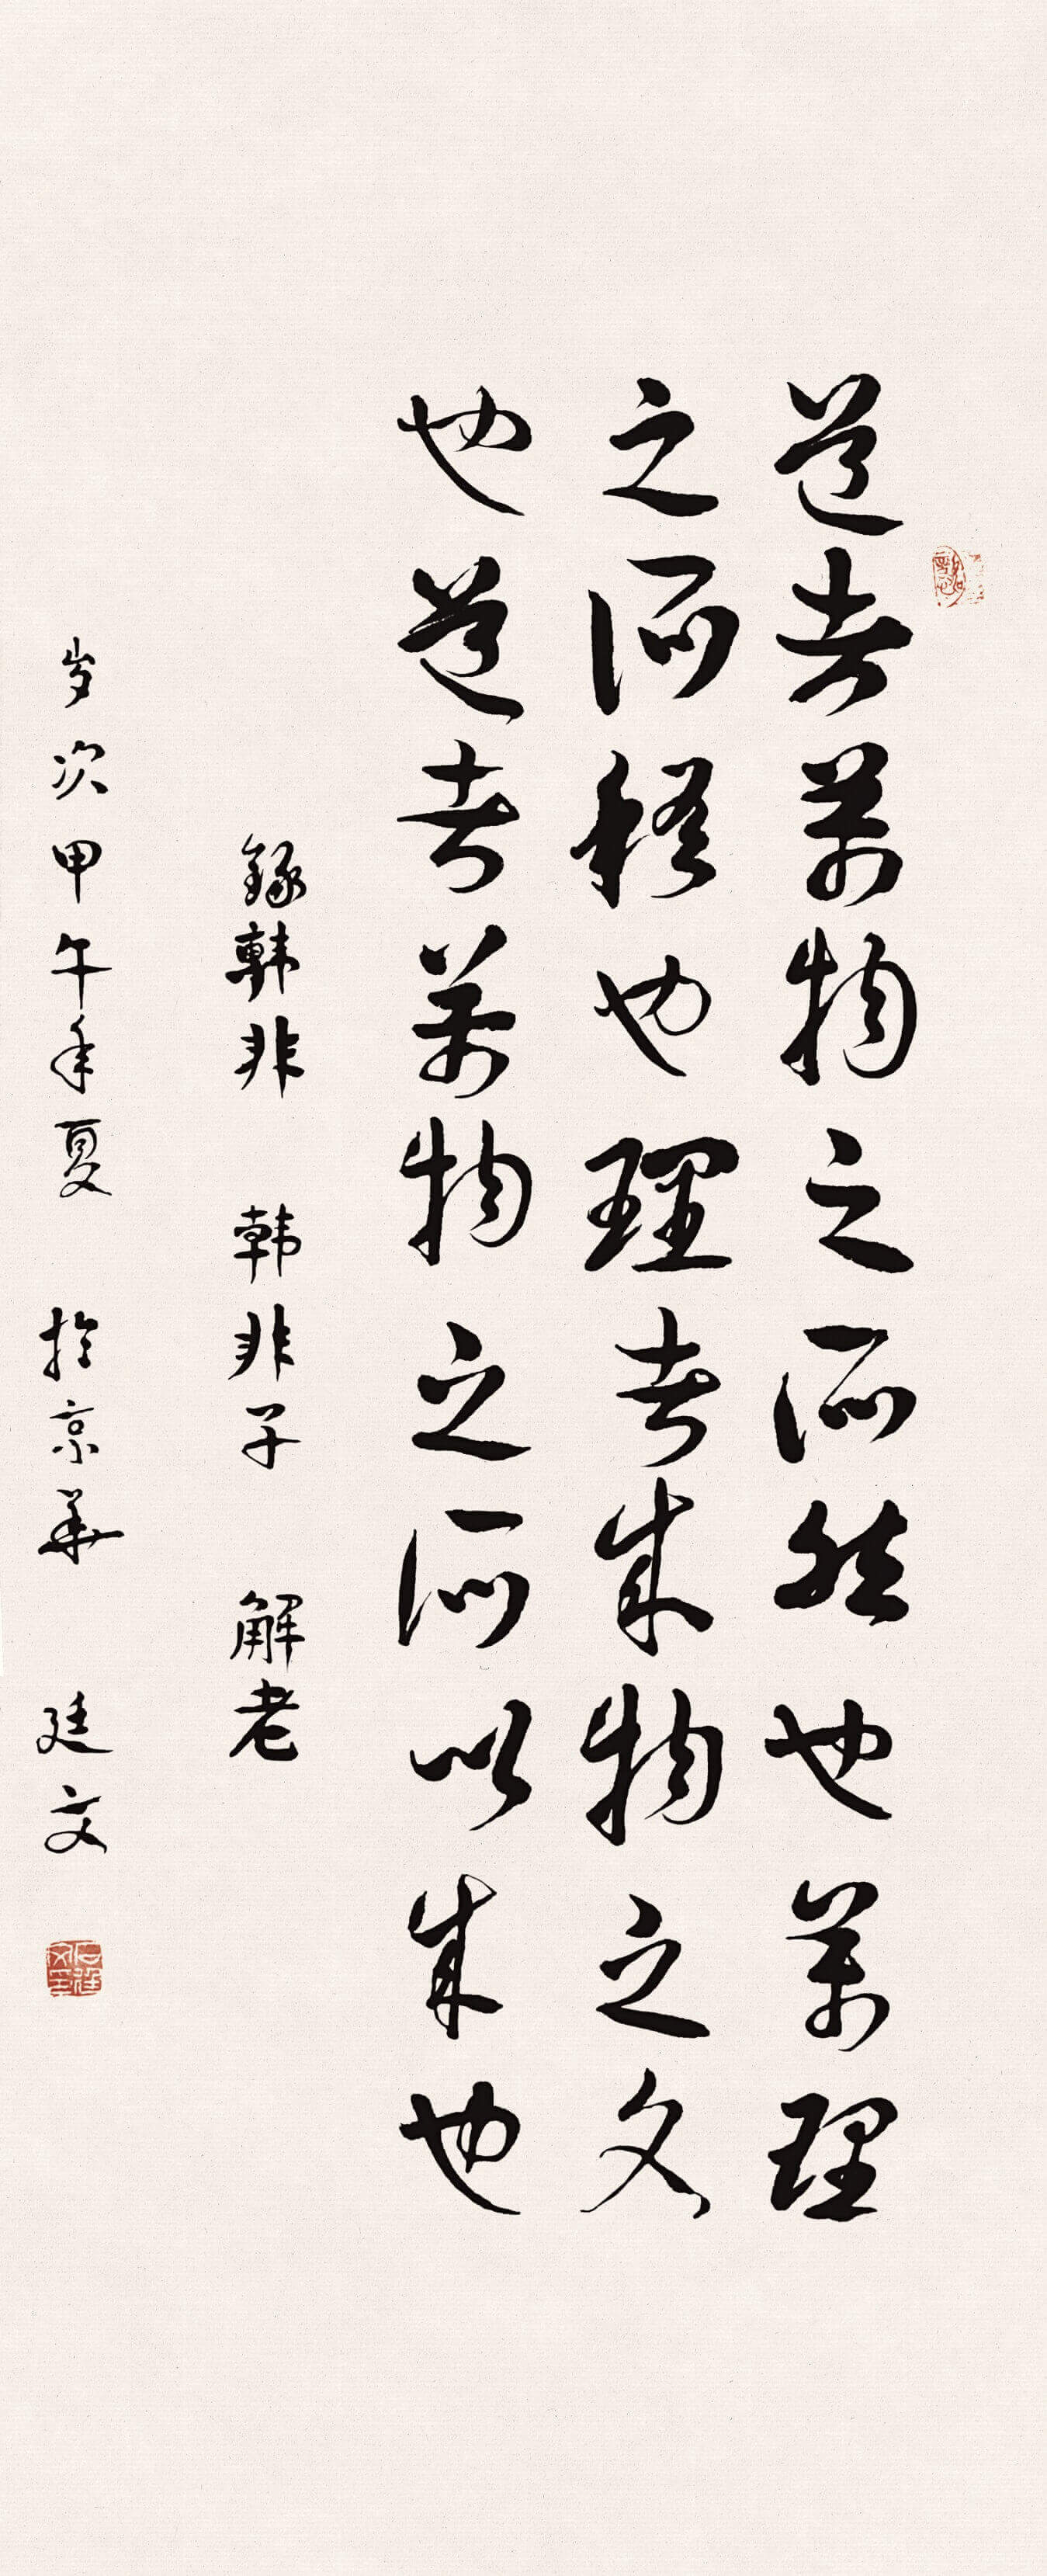 道者萬物之所然也萬理
之所稽也理者成物之文
也道者萬物之所以成也
錄韩非 韩非子 解老
岁次甲午年夏 於京華 廷文
石廷文印